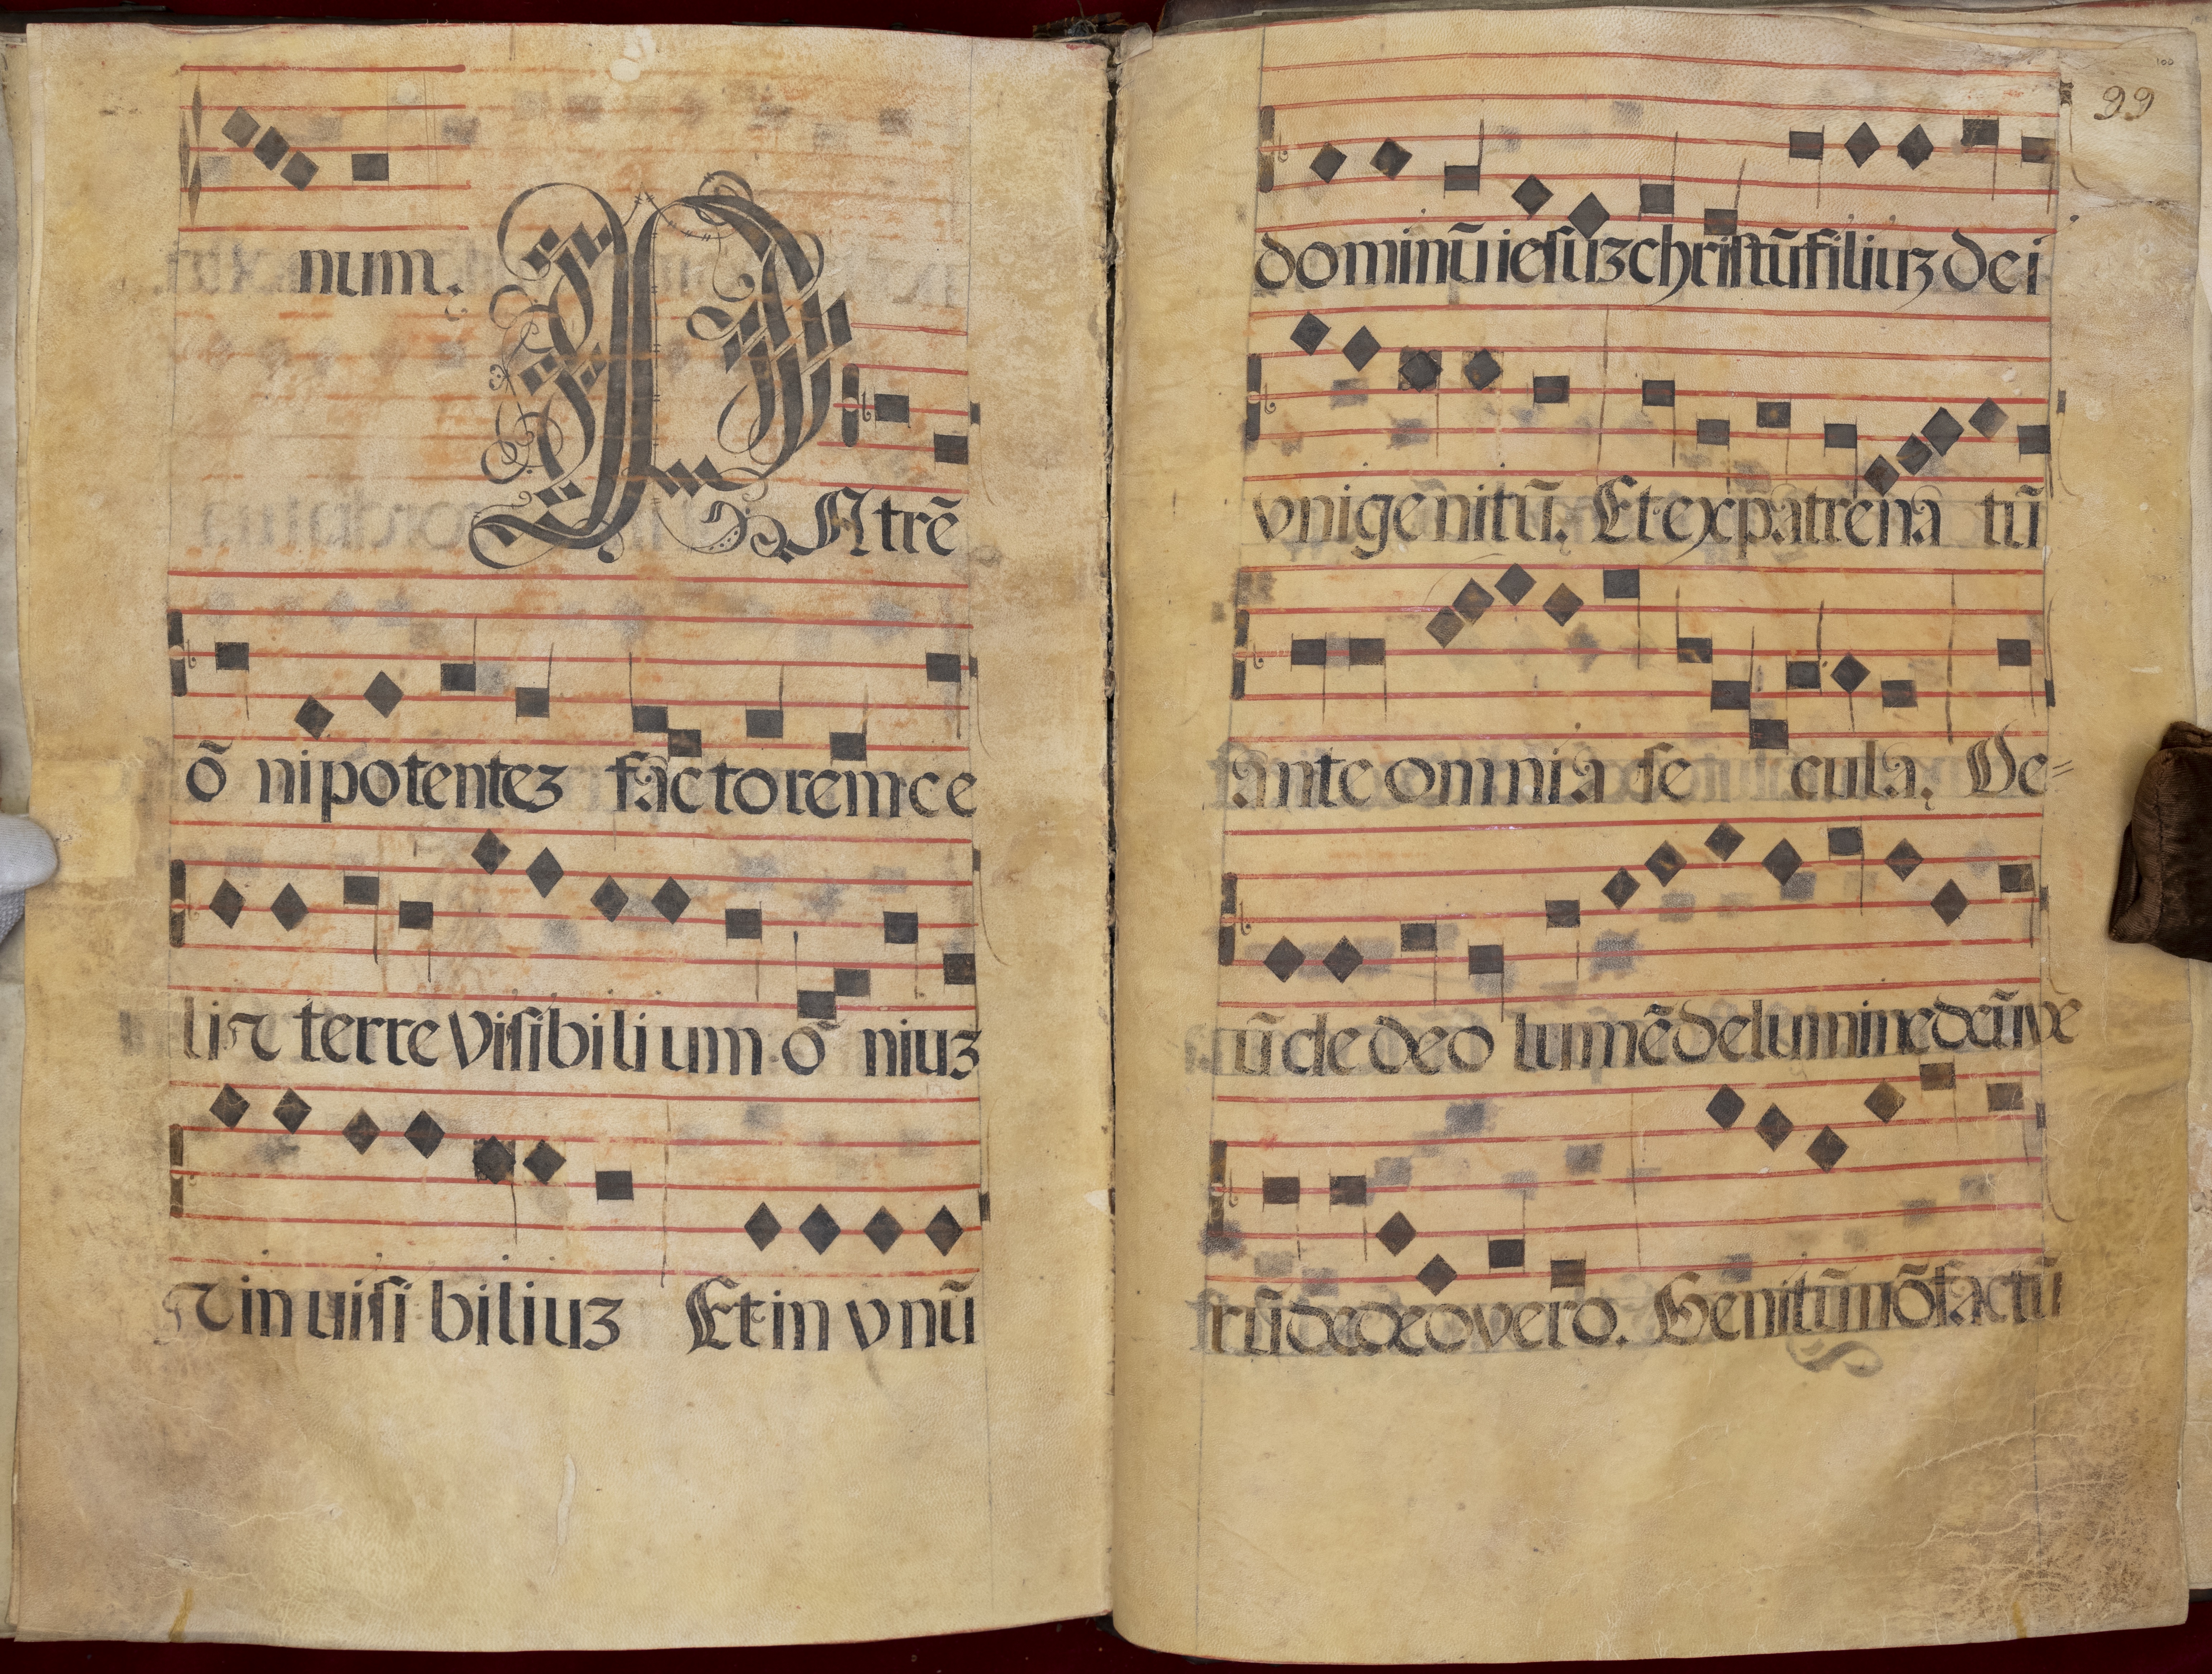 num.
PAtrẽ
õ nipotentez factoremce
liꝛ terre visibilium õ niuz
ꝛ in uisi biliuz Et in vnũ
100
99
dominũ iesuz christũ filiuz dei
vnigẽnitũ. Et ex patre na tũ
ante omnia se cula. De=
ũ de deo lumẽ de lumine deũ ve
rũ de deo vero. Genitũ nõ factũ